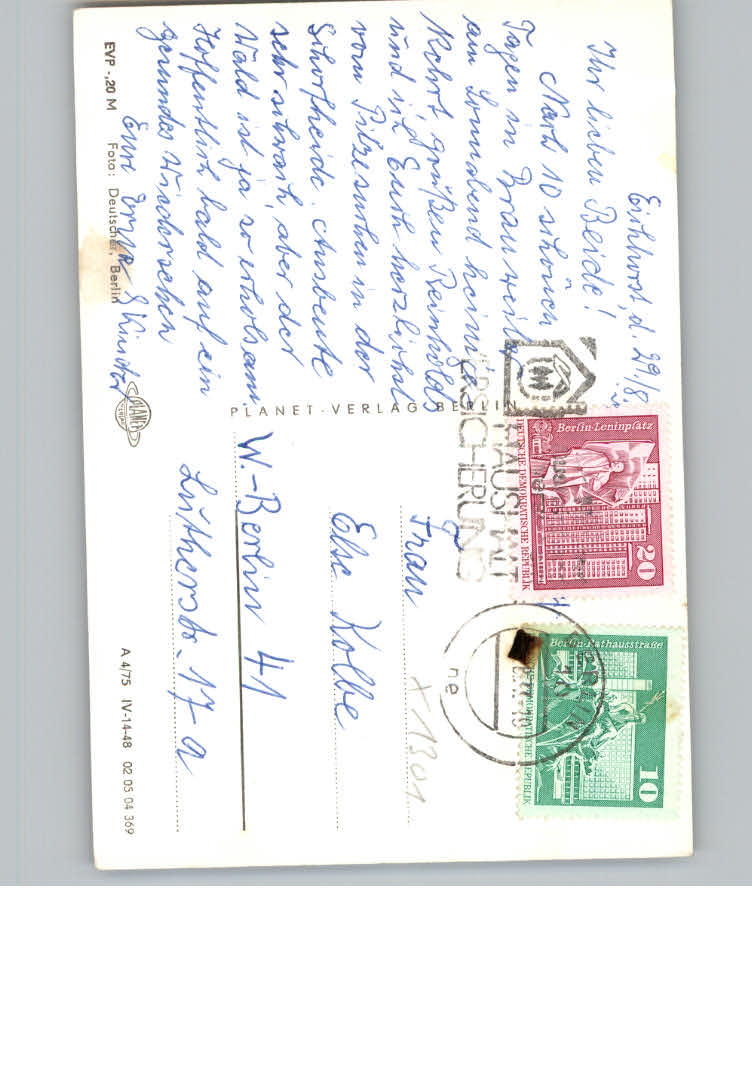 Eichhorst, d. 29./8.
Ihr lieben Beide!
Nach 10 schönen
Tagen in Braunweiler
am Sonnabend heimge
kehrt, grüßen Reinholds
und ich Euch herzlichst
vom Pilzesuchen in der
Schorfheide. Ausbeute
sehr schwach, aber der
Wald ist ja so erholsam.
Hoffentlich bald auf ein
gesundes Wiedersehen
Eure & Kinder
EVP -,20 M Foto: Deutscher, Berlin
PLANET
PLANET-VERLAG BERLIN
HAUSHALT
VERSICHERUNG
Berlin-Leninplatz
DEUTSCHE DEMOKRATISCHE REPUBLIK
20
Berlin-Rathausstraße
DEUTSCHE DEMOKRATISCHE REPUBLIK
10
BERLIN
ne
Frau
Else Kolbe
W.-Berlin 41
Lutherstr. 17 a
X 1301
A 4/75 IV-14-48 02 05 04 369